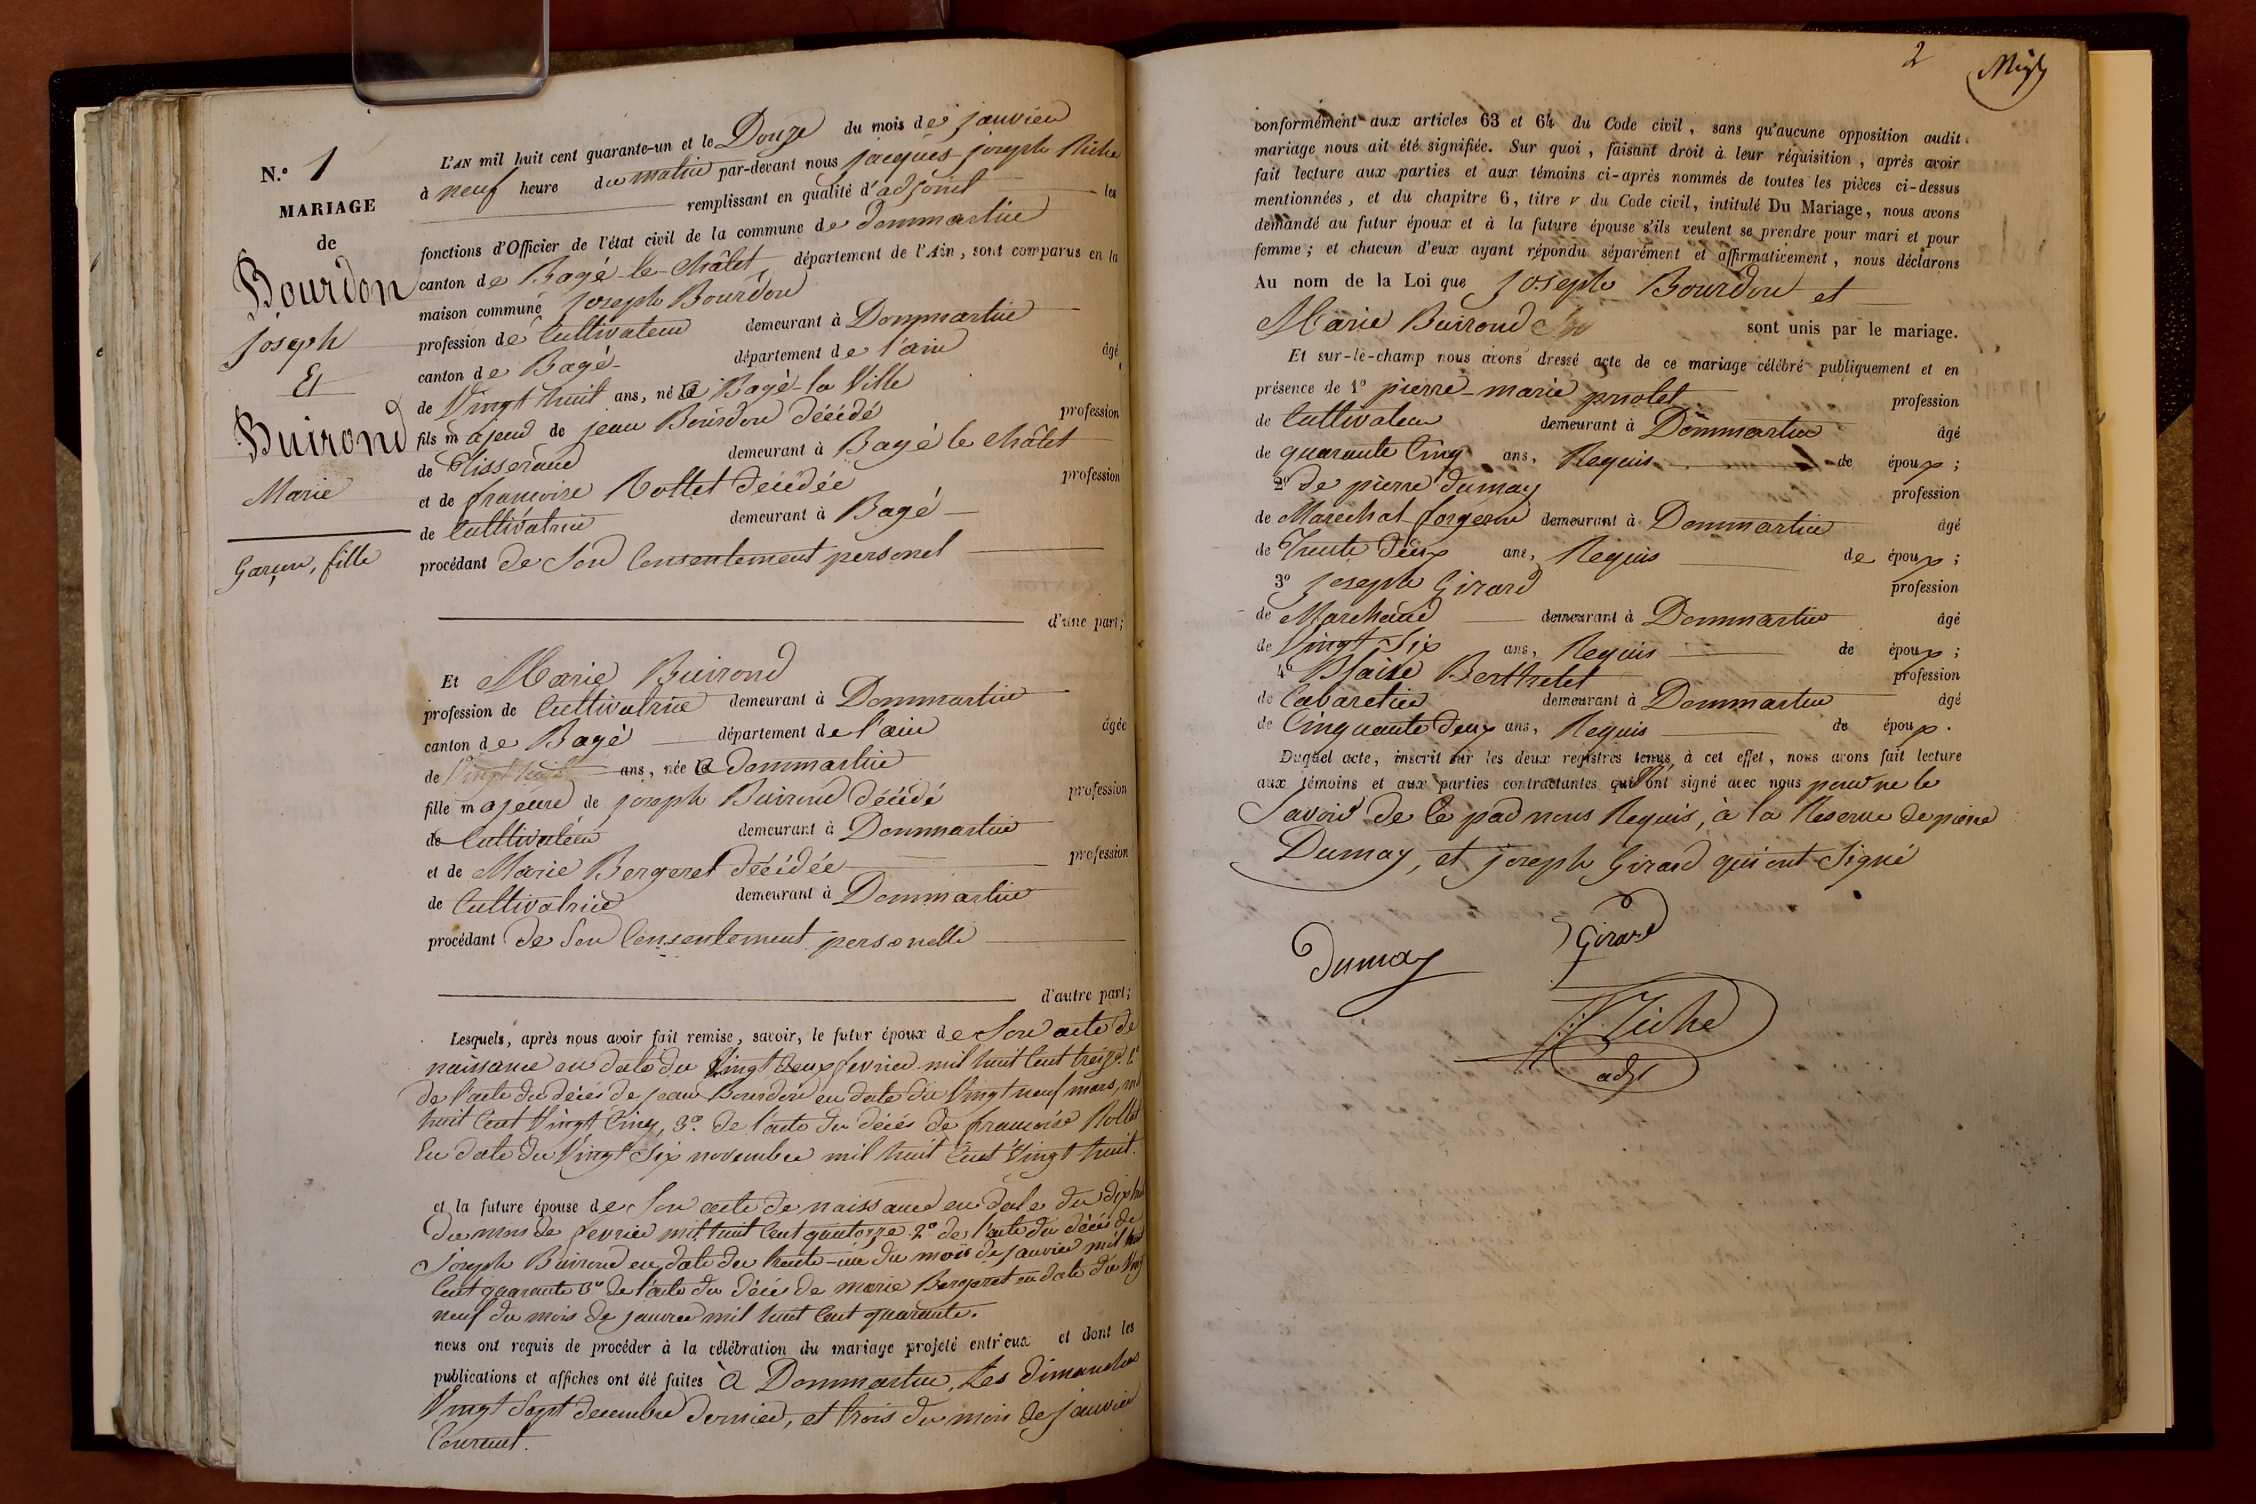 N.° 1
MARIAGE
de
Bourdon
joseph
Et
Buirond
Marie
Garçon, fille
L'AN mil huit cent quarante-un et le Douze du mois de janvier
à neuf heure du matin par-devant nous jacques joseph Riche
remplissant en qualité d'adjoint les
fonctions d'Officier de l'état civil de la commune de dommartin
canton de Bagé-le-Châtel, département de l'Ain, sont comparus en la
maison commune joseph Bourdon
profession de Cultivateur demeurant à Dommartin
canton de Bagé département de l'ain âgé
de Vingt huit ans, né à Bagé-la Ville
fils majeur de jean Bourdon décédé profession
de Tisserand demeurant à Bagé le châtel
et de francoise Rollet décédée profession
de Cultivatrice demeurant à Bagé
procédant de Son Consentement personel
d'une part;
Et Marie Buirond
profession de Cultivatrice demeurant à Dommartin
canton de Bagé département de l'ain âgée
de Vingt huit ans, née à Dommartin
fille majeure de joseph Buirond décédé profession
de Cultivateur demeurant à Dommartin
et de Marie Bergeret décédée profession
de Cultivatrice demeurant à Dommartin
procédant de Son Consentement personelle
d'autre part;
Lesquels, après nous avoir fait remise, savoir, le futur époux de Son acte de
naissance en date du Vingt deux fevrier mil huit Cent treize 2°
de l'acte du décés de jean Bourdon en date du Vingt neuf mars, mil
huit Cent Vingt Cinq, 3° de l'acte du décés de francoise Rollet
En date du Vingt Six novembre mil huit Cent Vingt huit.
et la future épouse de Son acte de naissance en date du dix huit
du mois de fevrier mil huit Cent quatorze 2° de l'acte du décés de
Joseph Buirond en date du trente-un du mois de janvier mil huit
Cent quarante 3° de l'acte du décés de marie Bergeret en date du Vingt
neuf du mois de janvier mil huit Cent quarante.
nous ont requis de procéder à la célébration du mariage projeté entr'eux et dont les
publications et affiches ont été faites à Dommartin, Les dimanches
Vingt Sept decembre dernier, et trois du mois de janvier
Courant.
2
conformément aux articles 63 et 64 du Code civil, sans qu'aucune opposition audit
mariage nous ait été signifiée. Sur quoi, faisant droit à leur réquisition, après avoir
fait lecture aux parties et aux témoins ci-après nommés de toutes les pièces ci-dessus
mentionnées, et du chapitre 6, titre v du Code civil, intitulé Du Mariage, nous avons
demandé au futur époux et à la future épouse s'ils veulent se prendre pour mari et pour
femme; et chacun d'eux ayant répondu séparément et affirmativement, nous déclarons
Au nom de la Loi que joseph Bourdon et
Marie Buirond sont unis par le mariage.
Et sur-le-champ nous avons dressé acte de ce mariage célébré publiquement et en
présence de 1° pierre-marie pnolet profession
de Cultivateur demeurant à Dommartin âgé
de quarante Cinq ans, Requis de époux;
2° de pierre dumay profession
de Marechal forgeron demeurant à Dommartin âgé
de Trente deux ans, Requis de époux;
3° joseph Girard profession
de Marchand demeurant à Dommartin âgé
de Vingt Six ans, Requis de époux;
4° Blaise Berthelet profession
de Cabaretier demeurant à Dommartin âgé
de Cinquante deux ans, Requis de époux.
Duquel acte, inscrit sur les deux registres tenus à cet effet, nous avons fait lecture
aux témoins et aux parties contractantes qui n'ont signé avec nous pour ne le
Savoir de le par nous Requis, à la Reserve de pierre
Dumay, et joseph Girard qui ont Signé
Dumay
Girard
J Riche
adjt